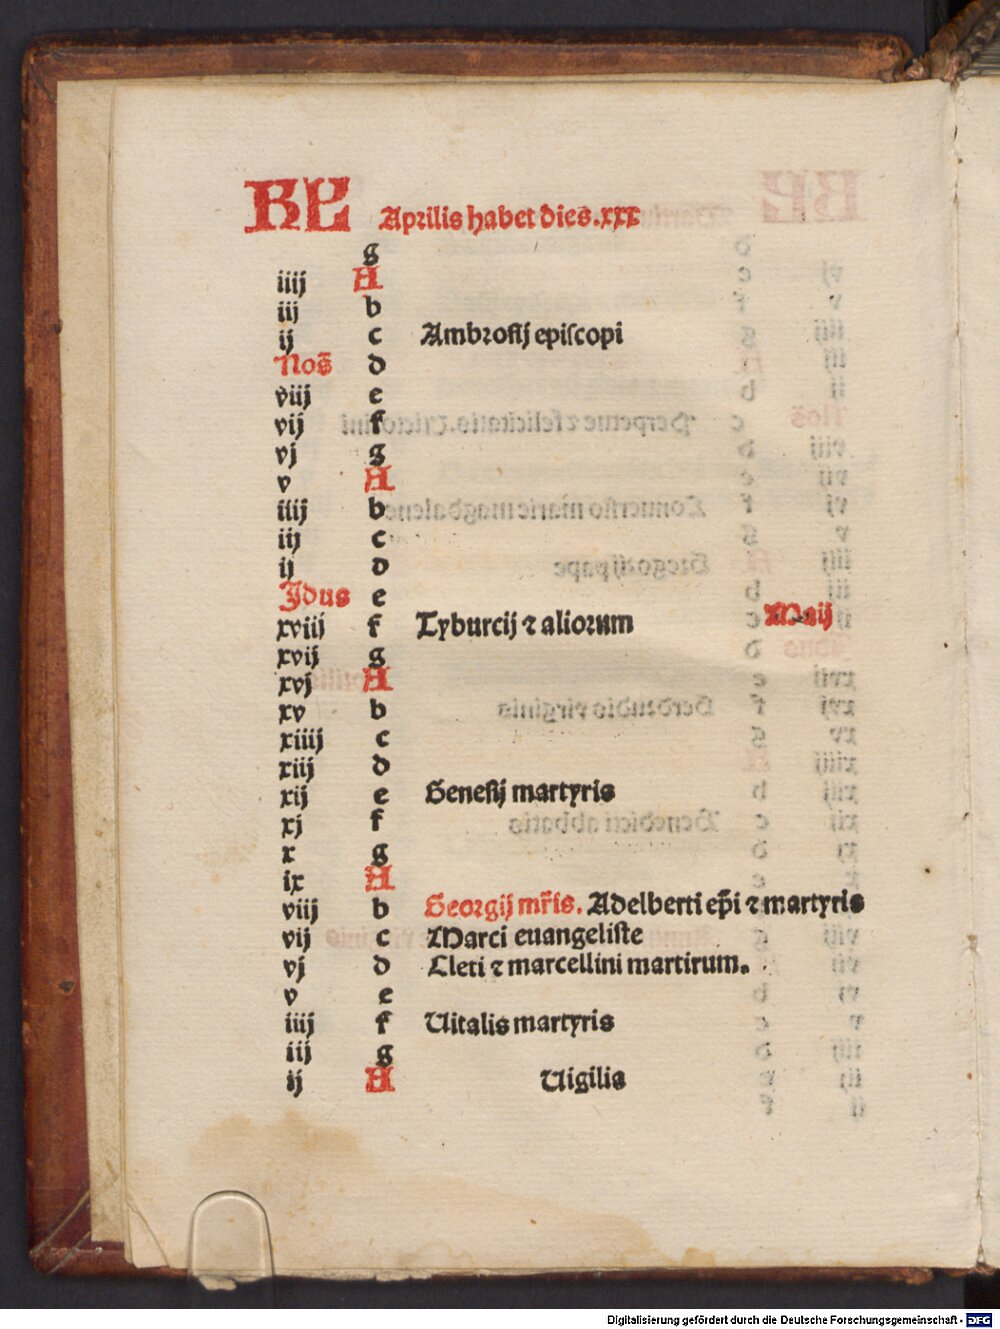 KL Aprilis habet dies.xxx
g
iiij A
iij b
ij c Ambrosij episcopi
Nos̄ d
viij e
vij f
vj g
v A
iiij b
iij c
ij d
Jdus e
xviij f Tyburcij ⁊ aliorum Maij
xvij g
xvj A
xv b
xiiij c
xiij d
xij e Genesij martyris
xj f
x g
ix A
viij b Georgij mr̄is. Adelberti ep̄i ⁊ martyris
vij c Marci euangeliste
vj d Cleti ⁊ marcellini martirum.
v e
iiij f Uitalis martyris
iij g
ij A Uigilia
Digitalisierung gefördert durch die Deutsche Forschungsgemeinschaft - DFG